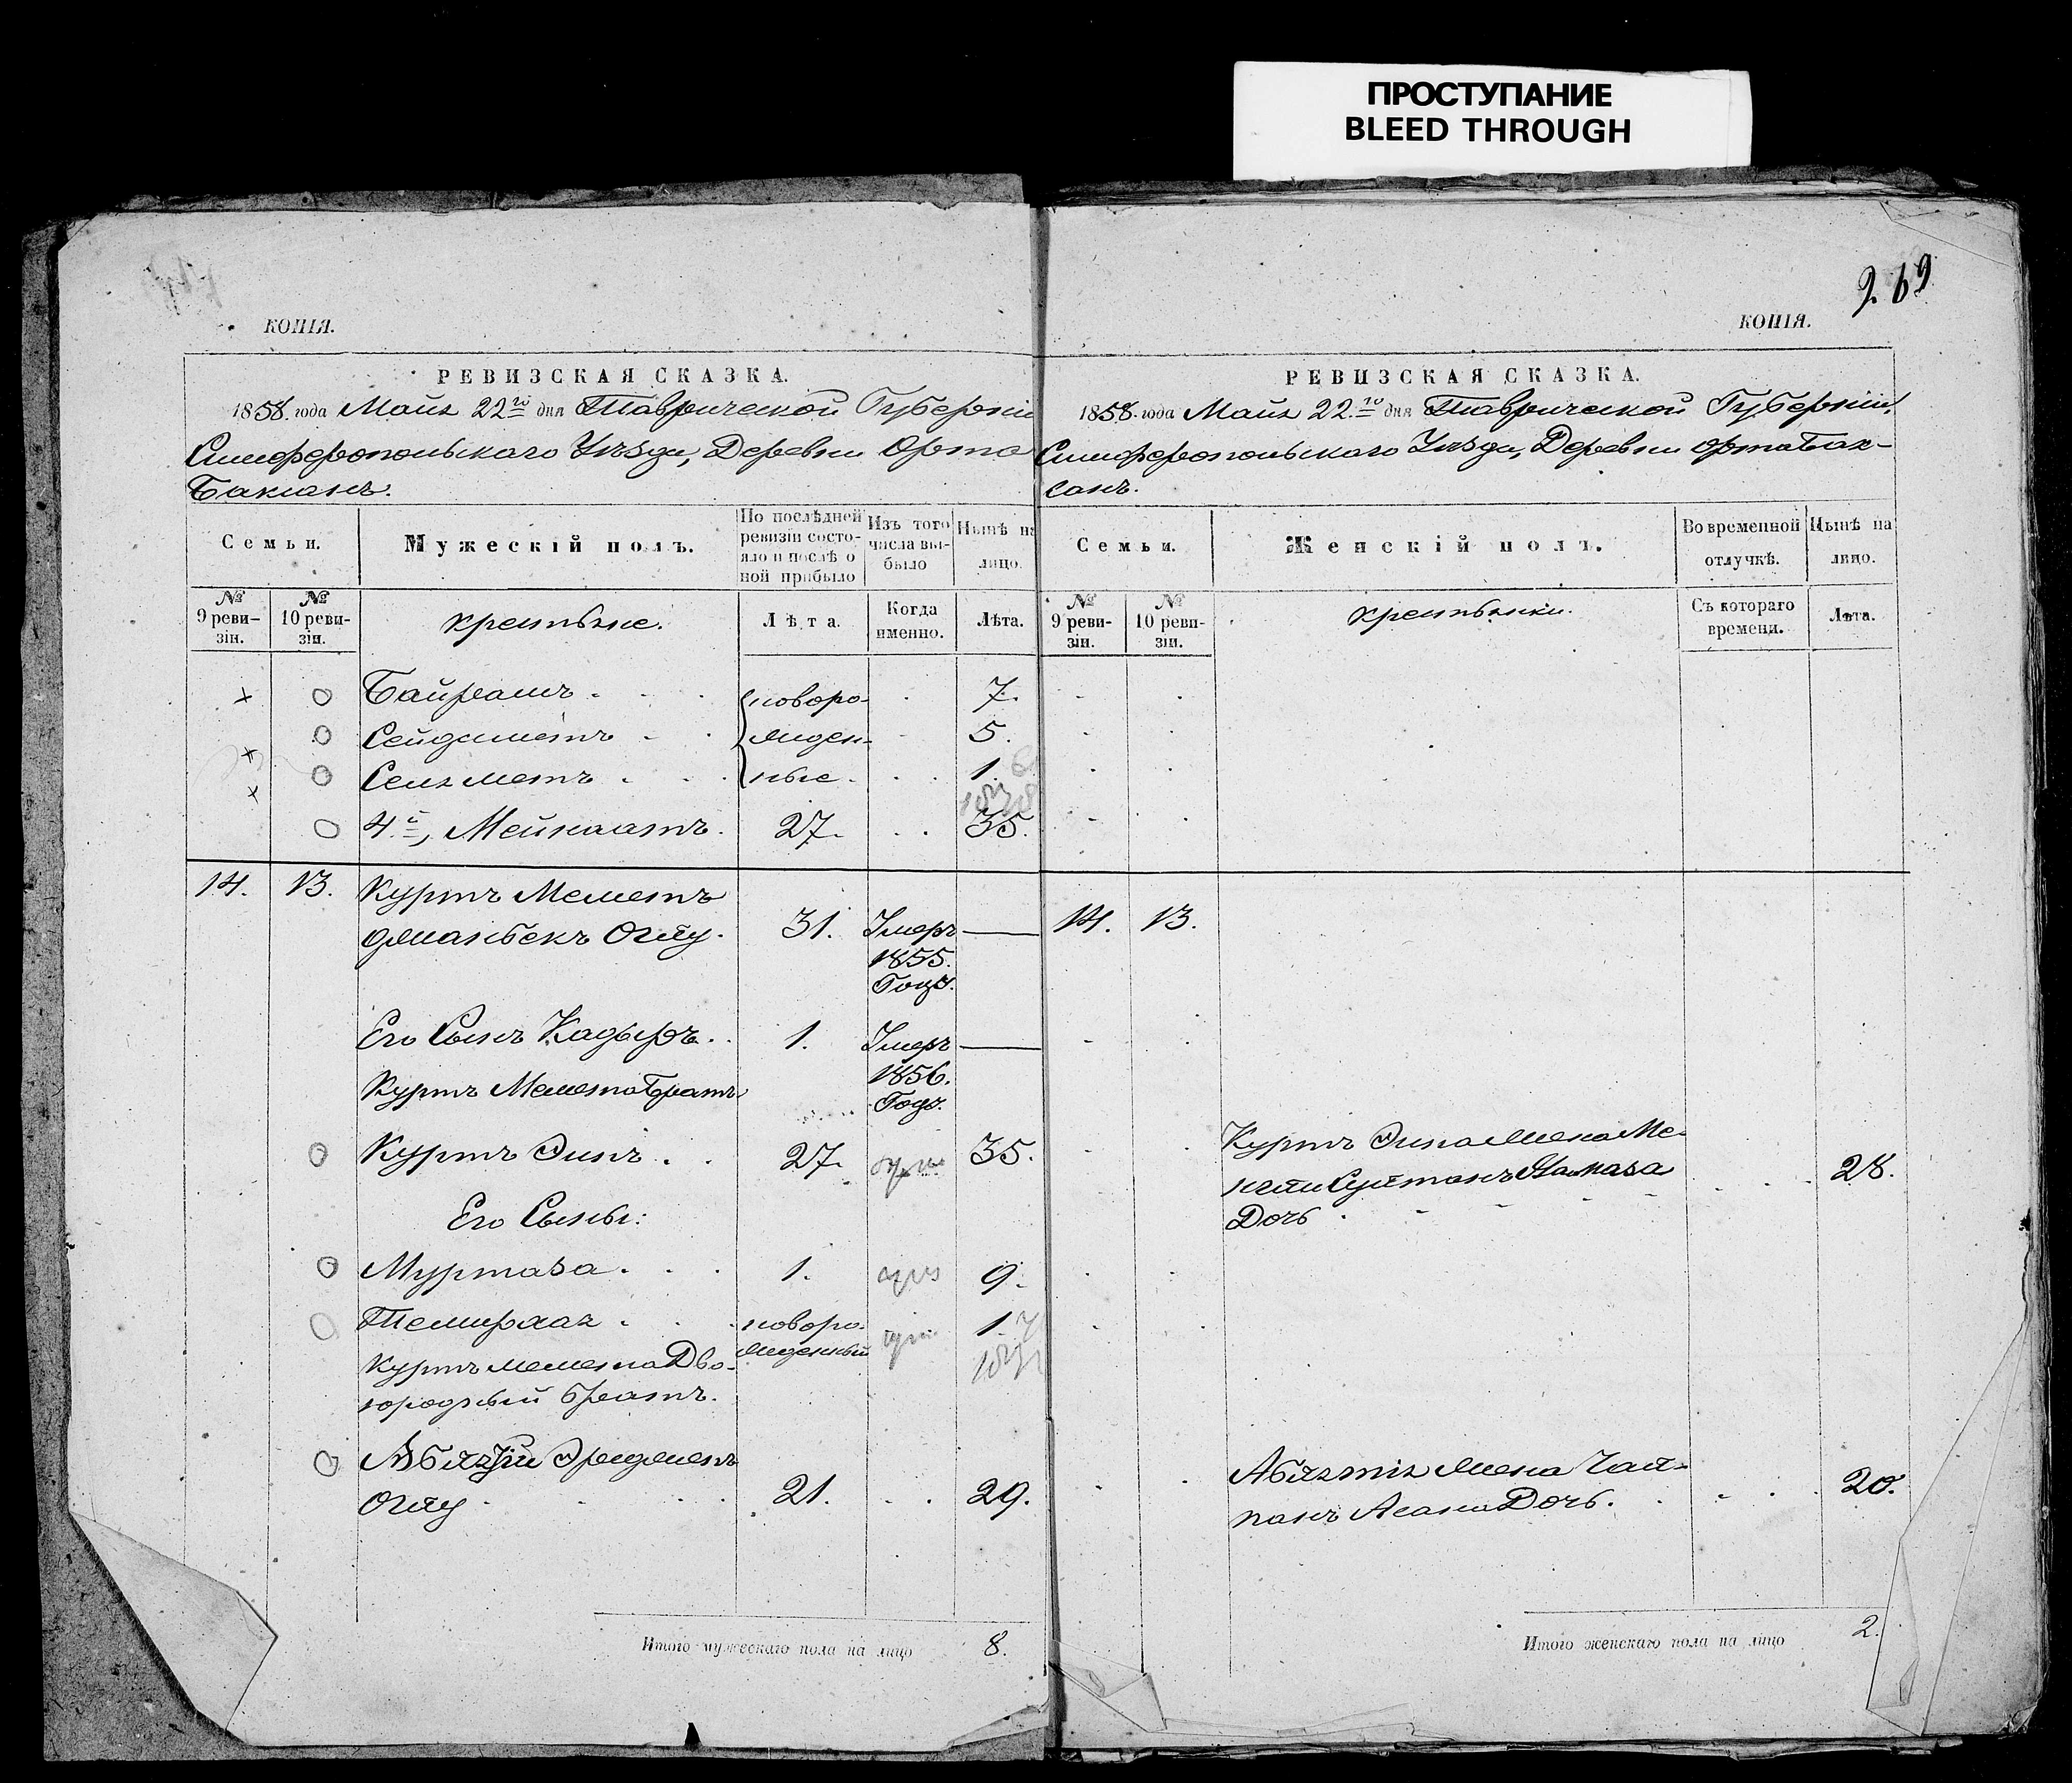 ПРОСТУПАНИЕ
BLEED THROUGH
269
КОПІЯ.
РЕВИЗСКАЯ СКАЗКА.
1858. года Майя 22го дня Таврической Губерніи
Симферопольскаго Уѣзда, Деревни Орта
Баксанъ.
Семьи.
Мужескій полъ.
По послѣдней ревизіи состояло и послѣ оной прибыло
Изъ того числа выбыло
Нынѣ на лицо.
№ 9 ревизіи.
№ 10 ревизіи.
Крестьяне.
Лѣта.
Когда именно.
Лѣта.
Байрамъ . новоро- 7.
Сейдаметъ - жден- 5.
Селяметъ . ные. 1.
4.й, Мейнаатъ. 27. 35.
14. 13. Куртъ Меметъ
Джанбекъ Оглу. 31. Умеръ
1855.
Году.
Его Сынъ Кадыръ. 1. Умеръ
1856.
Году.
Куртъ Мемета братъ
Куртъ Эминъ . 27. 35.
Его Сыны:
Муртаза . 1. 9.
Темирхая . новоро- 1.
жденный
Куртъ Мемета Дво-
юродный братъ.
Оглу 21. 29.
Итого мужескаго пола на лицо 8.
КОПІЯ.
РЕВИЗСКАЯ СКАЗКА.
1858. года Майя 22.го дня Таврической Губерніи,
Симферопольскаго Уѣзда, Деревни Орта Бак-
санъ.
Семьи.
Женскій полъ.
Во временной отлучкѣ.
Нынѣ на лицо.
№ 9 ревизіи.
№ 10 ревизіи.
Крестьянки.
Съ котораго времени.
Лѣта.
14. 13.
Куртъ Эмина жена Ме-
Дочь . 28.
жена Чал-
панъ Асана Дочь. 20.
Итого женскаго пола на лицо 2.